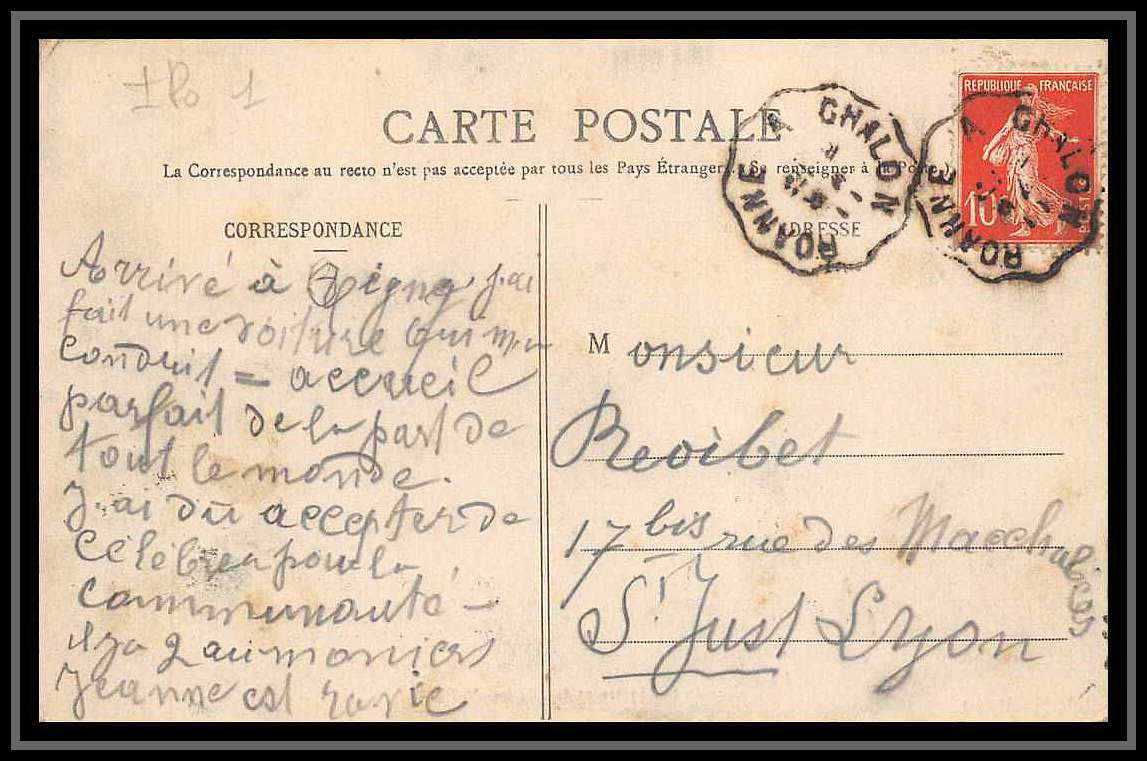 CARTE POSTALE
La Correspondance au recto n'est pas acceptée par tous les Pays Étrangers. Se renseigner à la Poste
CORRESPONDANCE
ADRESSE
RÉPUBLIQUE FRANÇAISE
10
POSTES
ROANNE A CHALON
ROANNE A CHALON
Arrivé à j'ai
fait une voiture qui m'a
conduit = accueil
parfait de la part de
tout le monde.
J'ai dû accepter de
célébrer pour la
communauté -
il y a 2 aumoniers
Jeanne est ravie
Monsieur
Revibet
17 bis rue des Macchabées
St Just Lyon